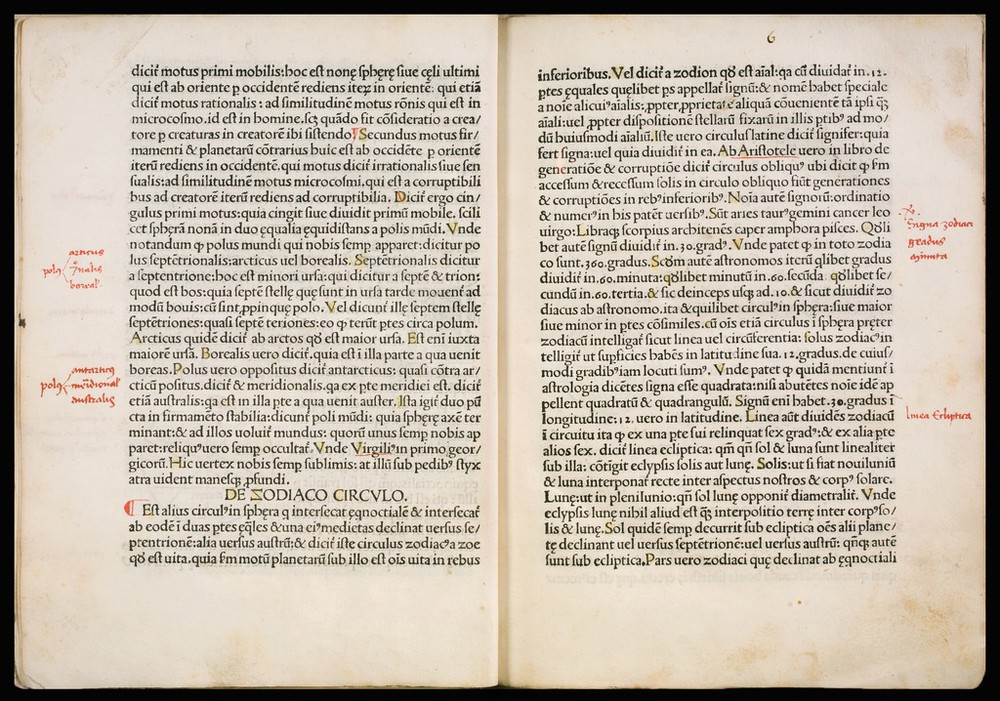 dicit̃ motus primi mobilis:hoc est nonę sphęrę siue cęli ultimi
qui est ab oriente p occidentē rediens iteꝝ in orientē: qui etiā
dicit̃ motus rationalis: ad similitudinē motus rōnis qui est in
microcosmo.id est in homine.scꝫ quādo fit cōsideratio a crea/
tore p creaturas in creatorē ibi sistendo¶Secundus motus fir/
mamenti & planetarū cōtrarius huic est ab occidēte p orientē
iterū rediens in occidentē.qui motus dicit̃ irrationalis siue sen
sualis:ad similitudinē motus microcosmi.qui est a corruptibili
bus ad creatorē iterū rediens ad corruptibilia. Dicit̃ ergo cin/
gulus primi motus:quia cingit siue diuidit primū mobile. scili
cet sphęrā nonā in duo ęqualia ęquidistans a polis mūdi. Vnde
notandum ꝙ polus mundi qui nobis semp apparet:dicitur po
lus septētrionalis:arcticus uel borealis. Septētrionalis dicitur
a septentrione:hoc est minori ursa: qui dicitur a septē & trion:
quod est bos:quia septē stellę quę sunt in ursa tarde mouent̃ ad
modū bouis:cū sint ꝓpinquę polo. Vel dicunt̃ illę septem stellę
septētriones:quasi septē teriones:eo ꝙ terūt ptes circa polum.
Arcticus quidē dicit̃ ab arctos qđ est maior ursa. Est enī iuxta
maiorē ursā. Borealis uero dicit̃.quia est ī illa parte a qua uenit
boreas. Polus uero oppositus dicit̃ antarcticus: quasi cōtra ar/
cticū positus.dicit̃ & meridionalis.qa ex pte meridiei est. dicit̃
etiā australis:qa est in illa pte a qua uenit auster. Ista igit̃ duo pū
cta in firmamēto stabilia:dicunt̃ poli mūdi: quia sphęrę axē ter
minant:& ad illos uoluit̃ mundus: quorū unus semp nobis ap
paret:reliquꝰ uero semp occultat̃. Vnde Virgiliꝰ in primo geor/
gicorū. Hic uertex nobis semp sublimis: at illū sub pedibꝰ styx
atra uident manesqꝫ ꝓfundi.
DE ZODIACO CIRCVLO.
¶ Est alius circulꝰ in sphęra q intersecat ęqnoctialē & intersecat̃
ab eodē ī duas ptes ęq̃les & una eiꝰ medietas declinat uersus se/
ptentrionē:alia uersus austrū:& dicit̃ iste circulus zodiacꝰ a zoe
qđ est uita.quia ẜm motū planetarū sub illo est oīs uita in rebus
polꝰ
arcticus
borealꝭ
polꝰ
antarcticꝰ
meridionalꝭ
australis
6
inferioribus. Vel dicit̃ a zodion qđ est aīal:qa cū diuidat̃ in .12.
ptes ęquales quęlibet ps appellat̃ signū:& nomē habet speciale
a noīe alicuiꝰ aīalis:ꝓpter ꝓprietatē aliquā cōuenientē tā ipsi qꝫ
aīali:uel ꝓpter dispositionē stellarū fixarū in illis ptibꝰ ad mo/
dū huiusmodi aīaliū. Iste uero circulus latine dicit̃ signifer:quia
fert signa:uel quia diuidit̃ in ea. Ab Aristotele uero in libro de
generatiōe & corruptiōe dicit̃ circulus obliquꝰ ubi dicit ꝙ ẜm
accessum & recessum solis in circulo obliquo fiūt generationes
& corruptiōes in rebꝰ inferioribꝰ. Noīa autē signorū:ordinatio
& numerꝰ in his patēt uersibꝰ. Sūt aries taurꝰ gemini cancer leo
uirgo: Libraqꝫ scorpius architenēs caper amphora pisces. Qđli
bet autē signū diuidit̃ in .30.gradꝰ. Vnde patet ꝙ in toto zodia
co sunt .360.gradus. Scđm autē astronomos iterū qlibet gradus
diuidit̃ in .60.minuta:qđlibet minutū in .60.secūda qđlibet se/
cundū in .60.tertia.& sic deinceps usqꝫ ad .10.& sicut diuidit̃ zo
diacus ab astronomo.ita & quilibet circulꝰ in sphęra:siue maior
siue minor in ptes cōsimiles.cū oīs etiā circulus ī sphęra pręter
zodiacū intelligat̃ sicut linea uel circūferentia: solus zodiacꝰ in
telligit̃ ut supficies habēs in latitudine sua .12.gradus.de cuius/
modi gradibꝰ iam locuti sumꝰ. Vnde patet ꝙ quidā mentiunt̃ ī
astrologia dicētes signa esse quadrata:nisi abutētes noīe idē ap
pellent quadratū & quadrangulū. Signū enī habet .30.gradus ī
longitudine:12. uero in latitudine. Linea aūt diuidēs zodiacū
ī circuitu ita ꝙ ex una pte sui relinquat sex gradꝰ:& ex alia pte
alios sex. dicit̃ linea ecliptica: qm̄ qn̄ sol & luna sunt linealiter
sub illa: cōtīgit eclypsis solis aut lunę. Solis:ut si fiat nouiluniū
& luna interponat̃ recte inter aspectus nostros & corpꝰ solare.
Lunę:ut in plenilunio:qn̄ sol lunę opponit̃ diametralit̃. Vnde
eclypsis lunę nihil aliud est qꝫ interpositio terrę inter corpꝰ so/
lis & lunę. Sol quidē semp decurrit sub ecliptica oēs alii plane/
tę declinant uel uersus septētrionē:uel uersus austrū: qn̄qꝫ autē
sunt sub ecliptica. Pars uero zodiaci quę declinat ab ęqnoctiali
Signa zodiaci
gradus
minuta
linea Ecliptica